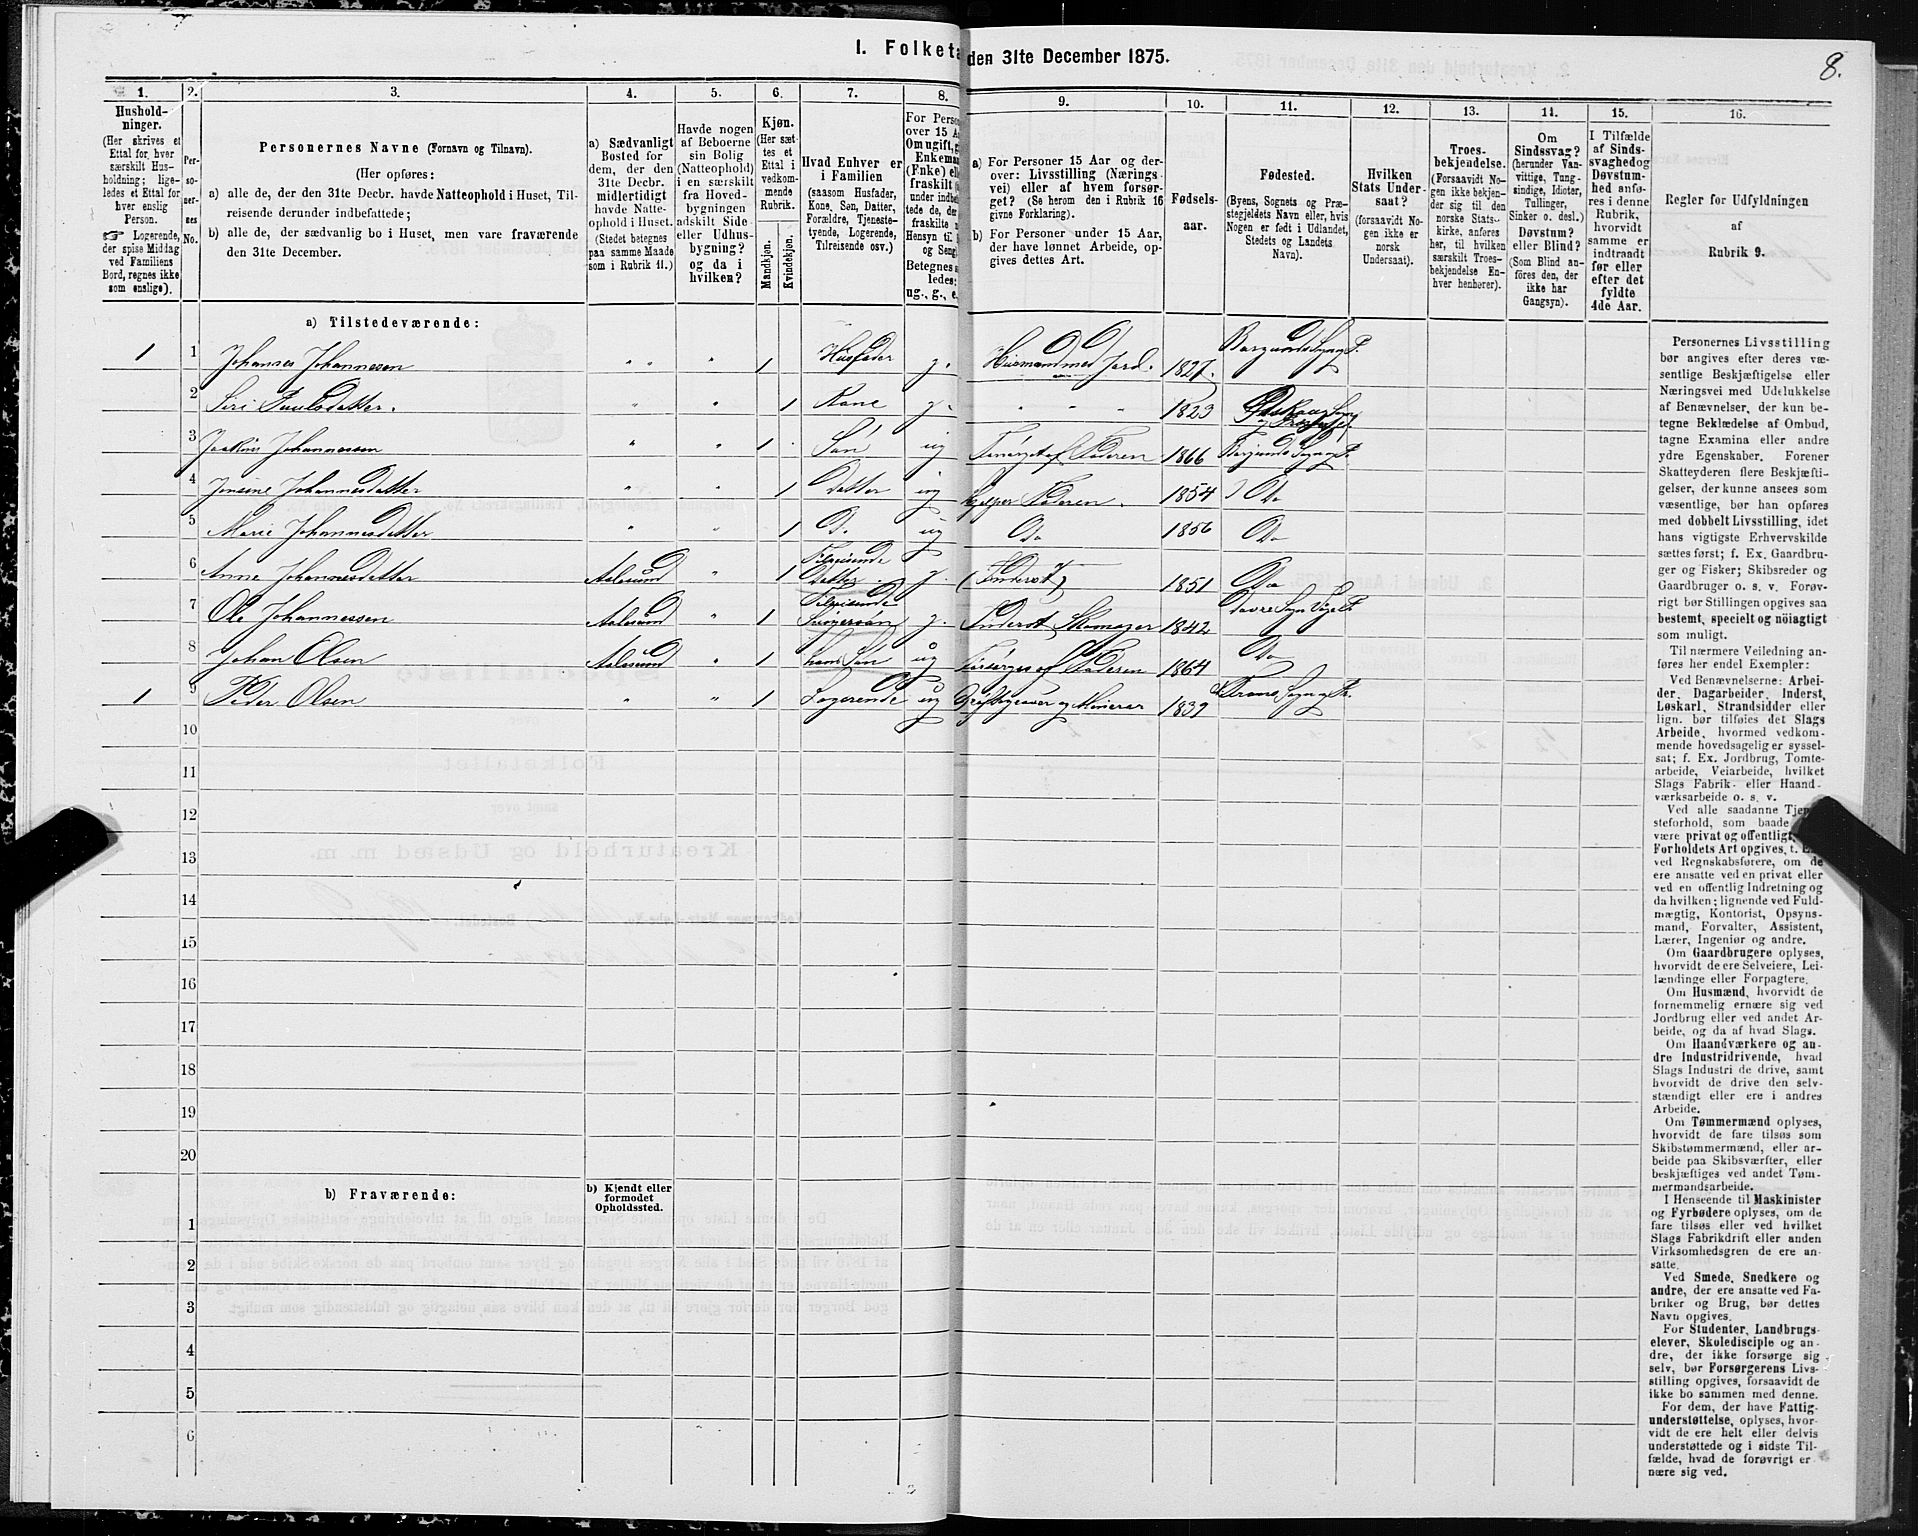 I. Folketa den 31te December 1875.
8.
1. 2. 3. 4. 5. 6. 7. 8. 9. 10. 11. 12. 13. 14. 15. 16.
Hushold-
ninger.
(Her skrives et
Ettal for hver
særskilt Hus-
holdning; lige-
ledes et Ettal for
hver enslig
Person.
☞ Logerende,
der spise Middag
ved Familiens
Bord, regnes ikke
som enslige).
Per-
so-
ner-
nes
No.
Personernes Navne (Fornavn og Tilnavn).
(Her opføres:
a) alle de, der den 31te Decbr. havde Natteophold i Huset, Til-
reisende derunder indbefattede;
b) alle de, der sædvanlig bo i Huset, men vare fraværende
den 31te December.
a) Sædvanligt
Bosted for
dem, der den
31te Decbr.
midlertidigt
havde Natte-
ophold i Huset.
(Stedet betegnes
paa samme Maade
som i Rubrik 11.)
Havde nogen
af Beboerne
sin Bolig
(Natteophold)
i en særskilt
fra Hoved-
bygningen
adskilt Side-
eller Udhus-
bygning?
og da i
hvilken?
Kjøn.
(Her sæt-
tes et
Ettal i
vedkom-
mende
Rubrik.
Mandkjøn.
Kvindekjøn.
Hvad Enhver er
i Familien
(saasom Husfader,
Kone, Søn, Datter,
Forældre, Tjeneste-
tyende, Logerende,
Tilreisende osv.)
For Perso
over 15 A
Om ugift, g
Enkema
(Enke) ell
fraskilt
Betegnes
ledes:
ug., g., e.
a) For Personer 15 Aar og der-
over: Livsstilling (Nærings-
vei) eller af hvem forsør-
get? (Se herom den i Rubrik 16
givne Forklaring).
b) For Personer under 15 Aar,
der have lønnet Arbeide, op-
gives dettes Art.
Fødsels-
aar.
Fødested.
(Byens, Sognets og Præ-
stegjeldets Navn eller, hvis
Nogen er født i Udlandet,
Stedets og Landets
Navn).
Hvilken
Stats Under-
saat?
(forsaavidt No-
gen ikke er
norsk
Undersaat).
Troes-
bekjendelse.
(Forsaavidt No-
gen ikke bekjen-
der sig til den
norske Stats-
kirke, anføres
her, til hvilken
særskilt Troes-
bekjendelse En-
hver henhører).
Om
Sindssvag?
(herunder Van-
vittige, Tung-
sindige, Idioter,
Tullinger,
Sinker o. desl.)
Døvstum?
eller Blind?
(Som Blind an-
føres den, der
ikke har
Gangsyn).
I Tilfælde
af Sinds-
svaghed og
Døvstum-
hed anfø-
res i denne
Rubrik,
hvorvidt
samme er
indtraadt
før eller
efter det
fyldte
4de Aar.
Regler for Udfyldningen
af
Rubrik 9.
a) Tilstedeværende:
1 1 Johannes Johannesen " " 1 Husfader g. Husmand med Jord. 1827. Borgunds Sogn og P.
2 Siri Paulsdatter. " 1 Kone g. " " " 1823
3 Johannessen " " 1 Søn ug Forsørget af Faderen 1866 Borgunds Sogn og P.
4 Jensine Johannesdatter " " 1 Datter ug hjelper Faderen. 1854 Do
5 Marie Johannesdatter " " 1 Do ug Do 1856 Do
6 Anne Johannesdatter Aalesund " 1 Tilreisende Datter g. (Inderst) 1851 Do
7 Ole Johannessen Aalesund " 1 Tilreisende Svigersøn g. Inderst Skomager 1842 Dovre Sogn
8 Johan Olsen Aalesund " 1 hans Søn ug Forsørges af Faderen 1864 Do
1 9 Peder Olsen " " 1 Logerende ug og Minerer 1839
10
11
12
13
14
15
16
17
18
19
20
b) Fraværende:
b) Kjendt eller
formodet
Opholdssted.
1
2
3
4
5
6
Personernes Livsstilling
bør angives efter deres væ-
sentlige Beskjæftigelse eller
Næringsvei med Udelukkelse
af Benævnelser, der kun be-
tegne Beklædelse af Ombud,
tagne Examina eller andre
ydre Egenskaber. Forener
Skatteyderen flere Beskjæfti-
gelser, der kunne ansees som
væsentlige, bør han opføres
med dobbelt Livsstilling, idet
hans vigtigste Erhvervskilde
sættes først; f. Ex. Gaardbru-
ger og Fisker; Skibsreder og
Gaardbruger o. s. v. Forøv-
rigt bør Stillingen opgives saa
bestemt, specielt og nøiagtigt
som muligt.
Til nærmere Veiledning an-
føres her endel Exempler:
Ved Benævnelserne: Arbei-
der, Dagarbeider, Inderst,
Løskarl, Strandsidder eller
lign. bør tilføies det Slags
Arbeide, hvormed vedkom-
mende hovedsagelig er syssel-
sat; f. Ex. Jordbrug, Tomte-
arbeide, Veiarbeide, hvilket
Slags Fabrik- eller Haand-
værksarbeide o. s. v.
Ved alle saadanne Tje
steforhold, som baade
være privat og offentligt,
Forholdets Art opgives, t. Ex
ved Regnskabsførere, om de
ere ansatte ved en privat eller
ved en offentlig Indretning og
da hvilken; lignende ved Fuld-
mægtig, Kontorist, Opsyns-
mand, Forvalter, Assistent,
Lærer, Ingeniør og andre.
Om Gaardbrugere oplyses,
hvorvidt de ere Selveiere, Lei-
lændinge eller Forpagtere.
Om Husmænd, hvorvidt de
fornemmelig ernære sig ved
Jordbrug eller ved andet Ar-
beide, og da af hvad Slags.
Om Haandværkere og an-
dre Industridrivende, hvad
Slags Industri de drive, samt
hvorvidt de drive den selv-
stændigt eller ere i andres
Arbeide.
Om Tømmermænd oplyses,
hvorvidt de fare tilsøs som
Skibstømmermænd, eller ar-
beide paa Skibsværfter, eller
beskjæftiges ved andet Tøm-
mermandsarbeide.
I Henseende til Maskinister
og Fyrbødere oplyses, om de
fare tilsøs eller ved hvilket
Slags Fabrikdrift eller anden
Virksomhedsgren de ere an-
satte.
Ved Smede, Snedkere og
andre, der ere ansatte ved Fa-
briker og Brug, bør dettes
Navn opgives.
For Studenter, Landbrugs-
elever, Skoledisciple og an-
dre, der ikke forsørge sig
selv, bør Forsørgerens Livs-
stilling opgives, forsaavidt de
ikke bo sammen med denne.
For dem, der have Fattig-
understøttelse, oplyses, hvor-
vidt de ere helt eller delvis
understøttede og i sidste Til-
fælde, hvad de forøvrigt er-
nære sig ved.